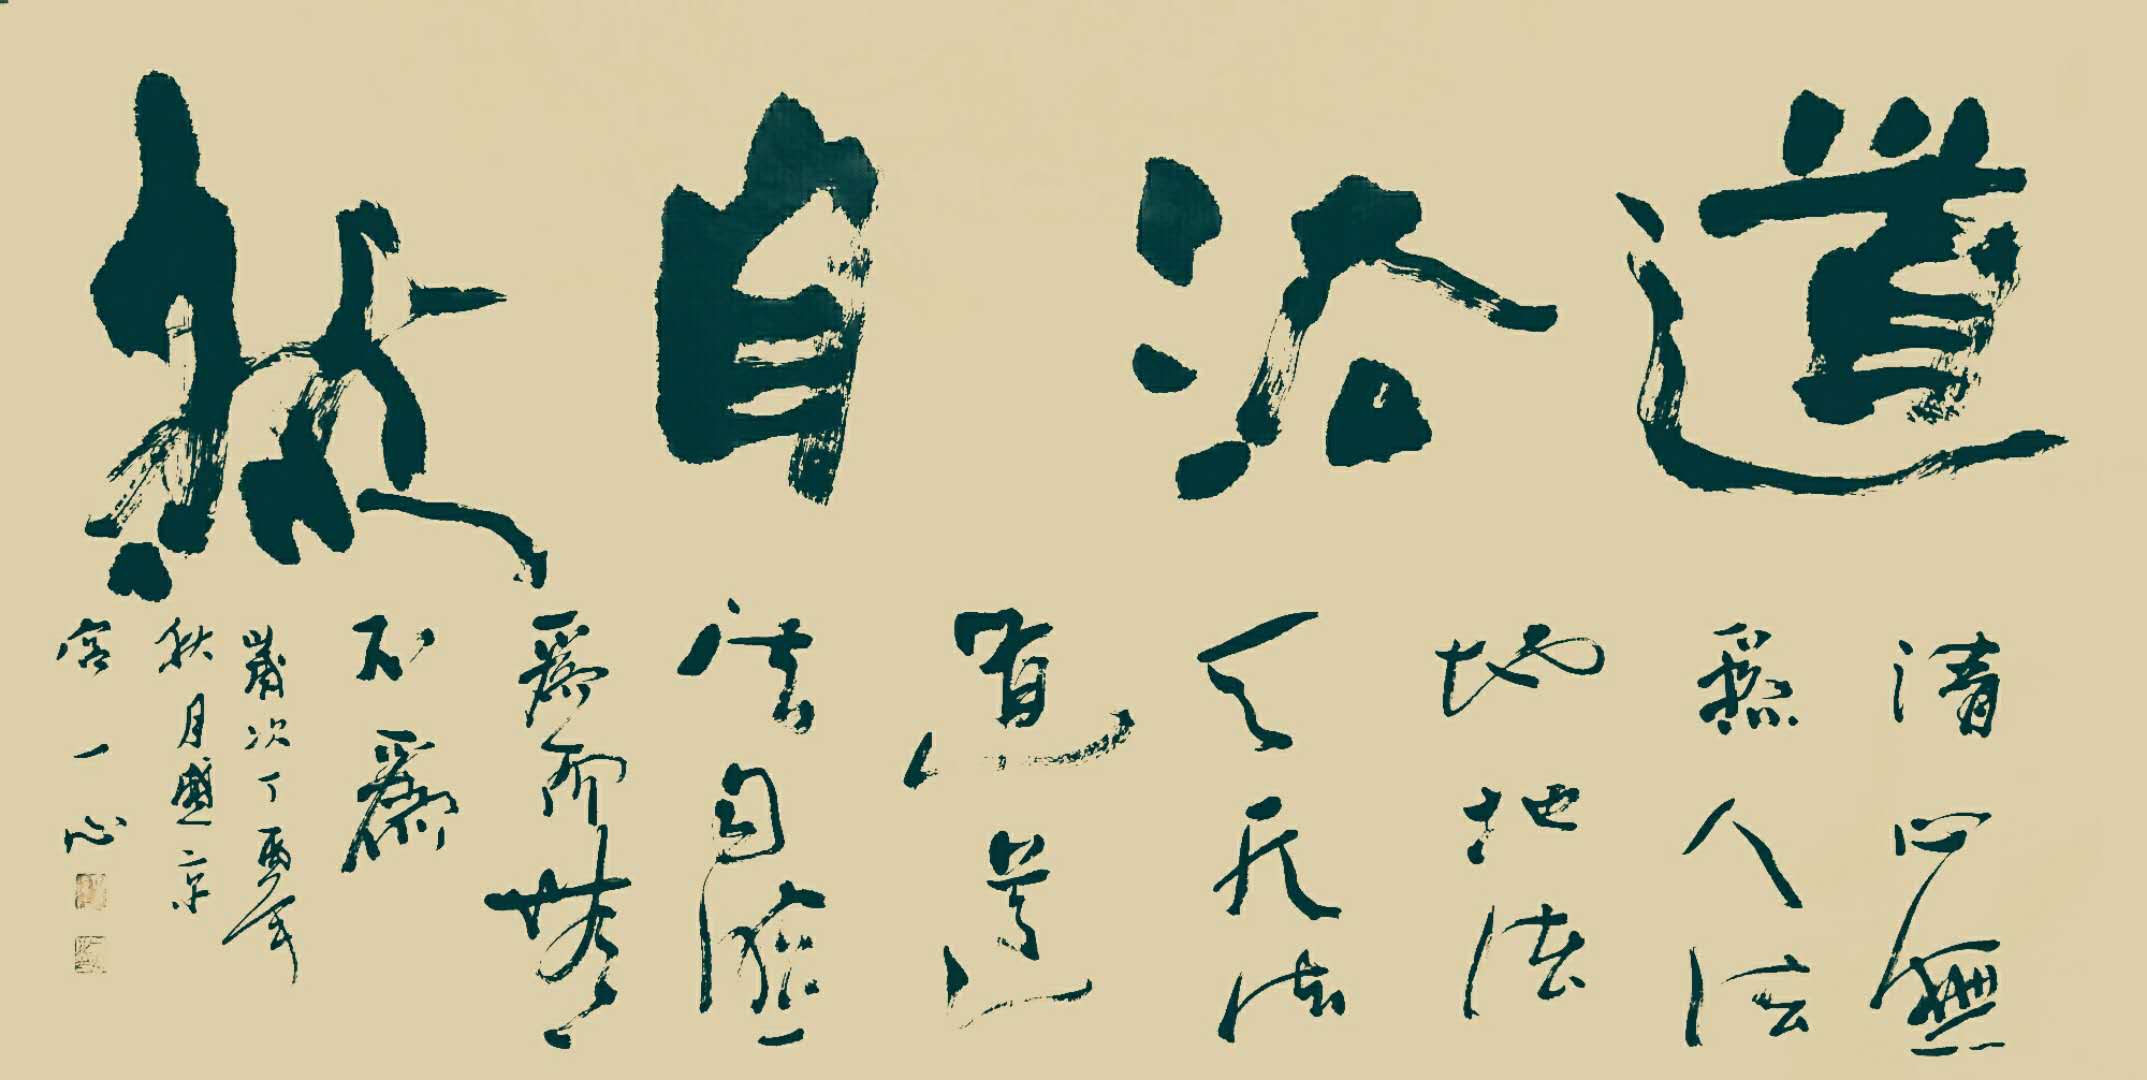 道法自然
清心無
為人法
地地法
天天法
道道
法自然
為而無
不為
歲次丁酉年
秋月盛京
宫一心